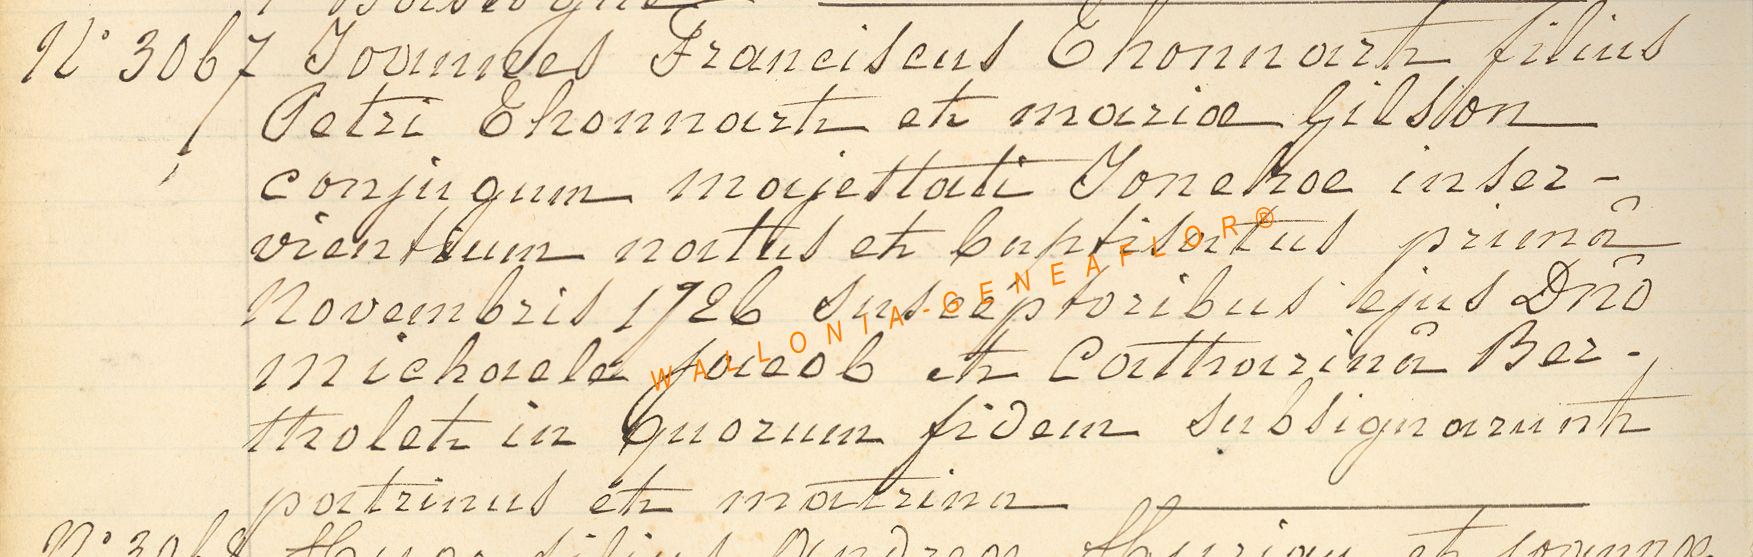 N° 3067 Joannes Franciscus Ehonnart filius
Petri Ehonnart et mariæ Gilsson
conjugum majestati Joneræ inser-
vientium natus et baptisatus primâ
Novembris 1726 susceptoribus ejus Dnô
Michaele Jacob et Catharinâ Ber-
tholet in quorum fidem subsignarunt
patrinus et matrina
N° 3068 filius et joannæ
WALLONIA-GENEAFLOR®